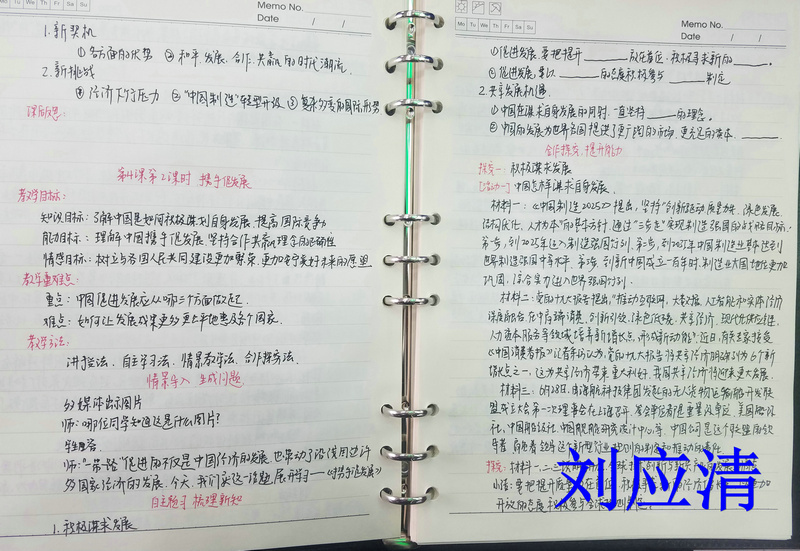 Memo No.
Mo Tu We Th Fr Sa Su
Date / /
1.新契机
①各方面的优势 ②和平、发展、合作、共赢的时代潮流.
2.新挑战
①经济下行压力 ②"中国制造"转型升级 ③复杂多变的国际形势
课后反思:
第4课第2课时 携手促发展
教学目标:
知识目标:了解中国是如何积极谋划自身发展,提高国际竞争力
能力目标:理解中国携手促发展,坚持合作共赢理念的正确性
情感目标:树立与各国人民共同建设更加繁荣,更加安宁美好未来的愿望
教学重难点:
重点:中国促进发展应从哪三个方面做起.
难点:如何让发展成果更多更公平地惠及各个国家.
教学方法:
讲授法、自主学习法、情景教学法、合作探究法.
情景导入 生成问题
多媒体出示图片
师:哪位同学知道这是什么图片?
学生回答.
师:"一带一路"促进的不仅是中国经济的发展,也带动了沿线周边许
多国家经济的发展.今天,我们就这一话题,展开学习——《携手促发展》
自主预习 梳理新知
1.积极谋求发展
Memo No.
Mo Tu We Th Fr Sa Su
Date / /
①促进发展,要把提升 放在首位,积极寻求新的 。
②促进发展,要以 的态度积极参与 制定.
2.共享发展机遇.
①中国在谋求自身发展的同时,一直坚持 的理念。
②中国的发展为世界各国提供了更广阔的市场、更充足的资本、 .
合作探究 提升能力
探究一 积极谋求发展
[活动一]中国怎样谋求自身发展.
材料一:《中国制造2025》提出,坚持"创新驱动、质量为先、绿色发展、
结构优化、人才为本"的基本方针,通过"三步走"实现制造强国的战略目标:
第一步,到2025年迈入制造强国行列,第二步,到2035年中国制造业整体达到
世界制造强国中等水平,第三步,到新中国成立一百年时,制造业大国地位更加
巩固,综合实力进入世界强国行列.
材料二:党的十九大报告提出,"推动互联网、大数据、人工智能和实体经济
深度融合,在中高端消费、创新引领、绿色低碳、共享经济、现代供应链、
人力资本服务等领域培育新增长点、形成新动能."近日,有关专家接受
《中国消费者报》记者采访认为,党的十九大报告将共享经济明确列为6个新
增长点之一,这为共享经济带来重大利好,我国共享经济将迎来更大发展.
材料三:6月28日,由海航科技集团发起的无人货物运输船开发联
盟成立大会第一次理事会在上海召开.
社、中国船级社、中国舰船研究设计中心等.中国公司是这个联盟的领
探究:材料一、二、三
小结:要把提升
开放的态度积极参与
刘应清